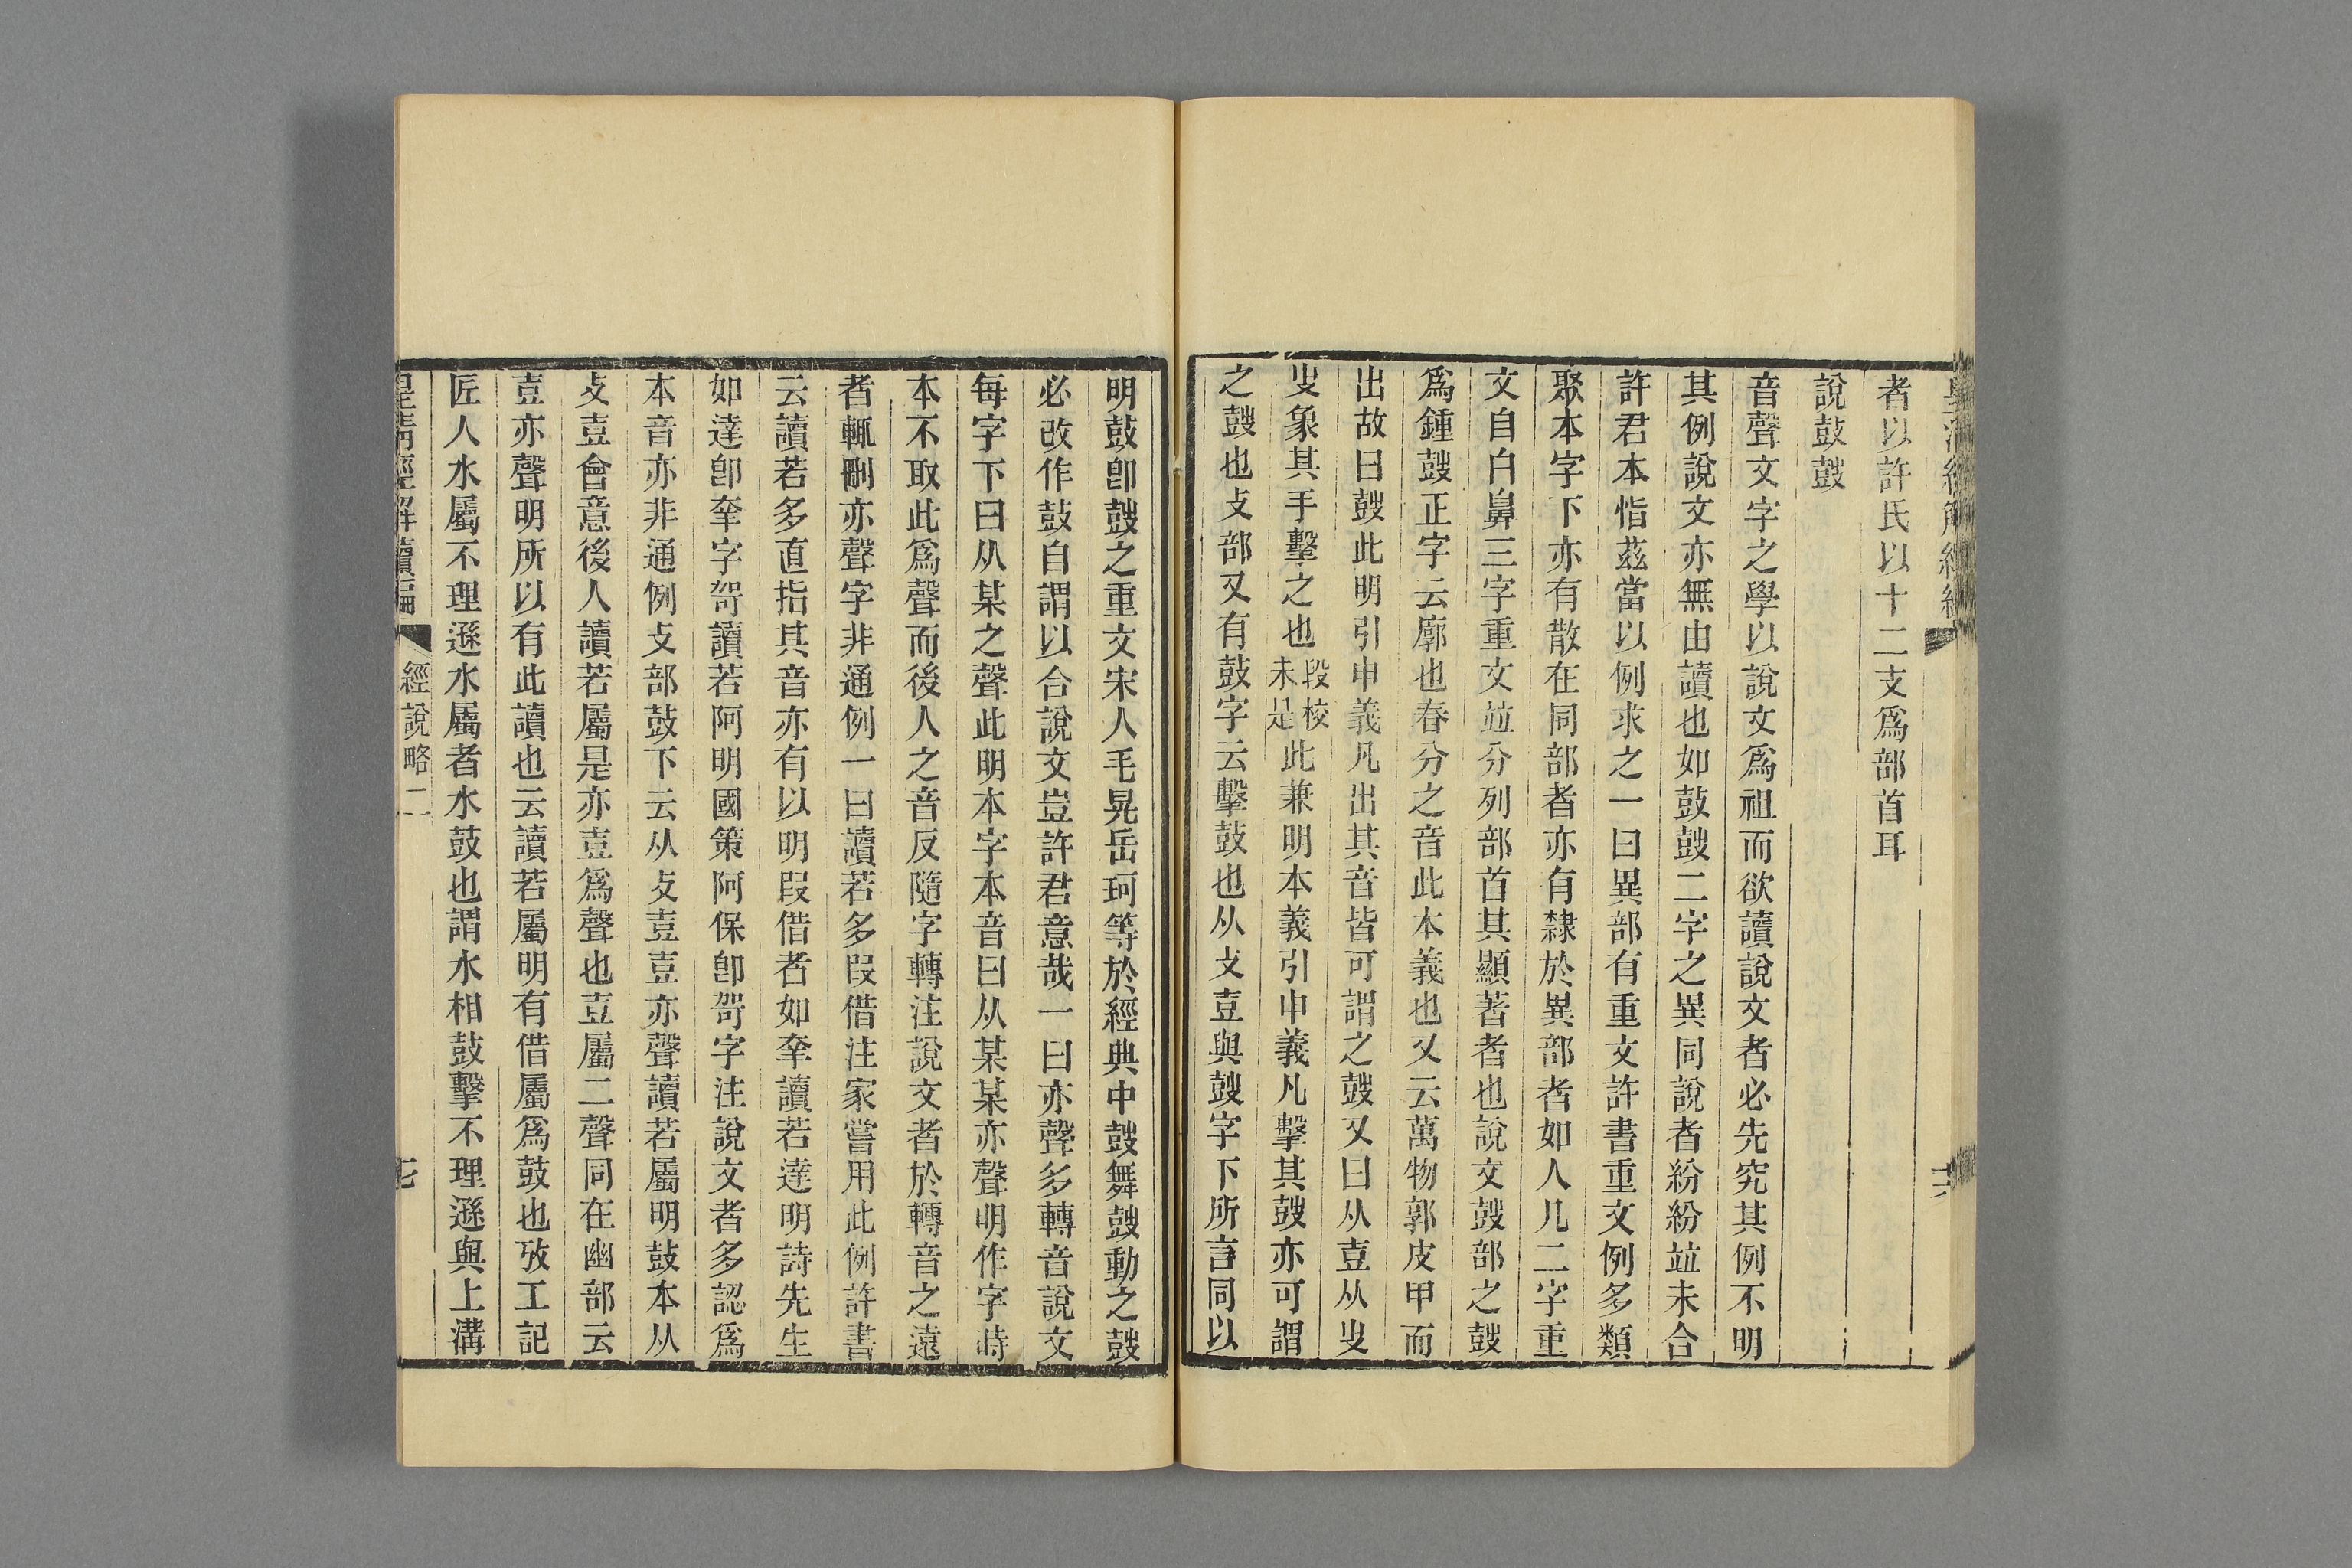 者以許氏以十二支爲部首耳
說鼓鼔
音聲文字之學以說文爲祖而欲讀說文者必先究其例不明
其例說文亦無由讀也如鼓鼔二字之異同說者紛紛竝未合
許君本恉茲當以例求之一曰異部有重文許書重文例多類
聚本字下亦有散在同部者亦有隸於異部者如人儿二字重
文自白鼻三字重文竝分列部首其顯著者也說文鼔部之鼔
爲鍾鼔正字云廓也春分之音此本義也又云萬物郭皮甲而
出故曰鼔此明引申義凡出其音皆可謂之鼔又曰从壴从㞢
㞢象其手擊之也段校未是此兼明本義引申義凡擊其鼔亦可謂
之鼔也攴部又有鼓字云擊鼓也从攴壴與鼔字下所言同以
明鼓卽鼔之重文宋人毛晃岳珂等於經典中鼔舞鼔動之鼔
必改作鼓自謂以合說文豈許君意哉一曰亦聲多轉音說文
每字下曰从某之聲此明本字本音曰从某某亦聲明作字時
本不取此爲聲而後人之音反隨字轉注說文者於轉音之遠
者輒刪亦聲字非通例一曰讀若多叚借注家嘗用此例許書
云讀若多直指其音亦有以明叚借者如羍讀若達明詩先生
如達卽羍字妿讀若阿明國策阿保卽妿字注說文者多認爲
本音亦非通例攴部鼓下云从攴壴壴亦聲讀若屬明鼓本从
攴壴會意後人讀若屬是亦壴爲聲也壴屬二聲同在幽部云
壴亦聲明所以有此讀也云讀若屬明有借屬爲鼓也攷工記
匠人水屬不理遜水屬者水鼓也謂水相鼓擊不理遜與上溝
皇清經解續編
經說略二